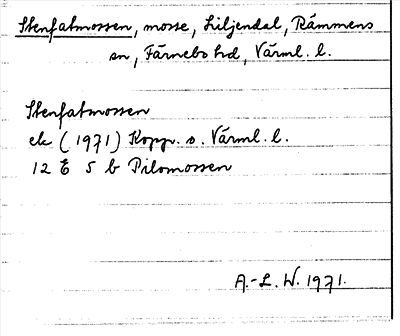 Stenfatmossen, mosse, Liljendal, Rämmens
sn, Färnebo hd, Värml. l.
Stenfatmossen
ek (1971) Kopp. o. Värml. l.
12 E 5 b Pilomossen
A.-L. W. 1971.